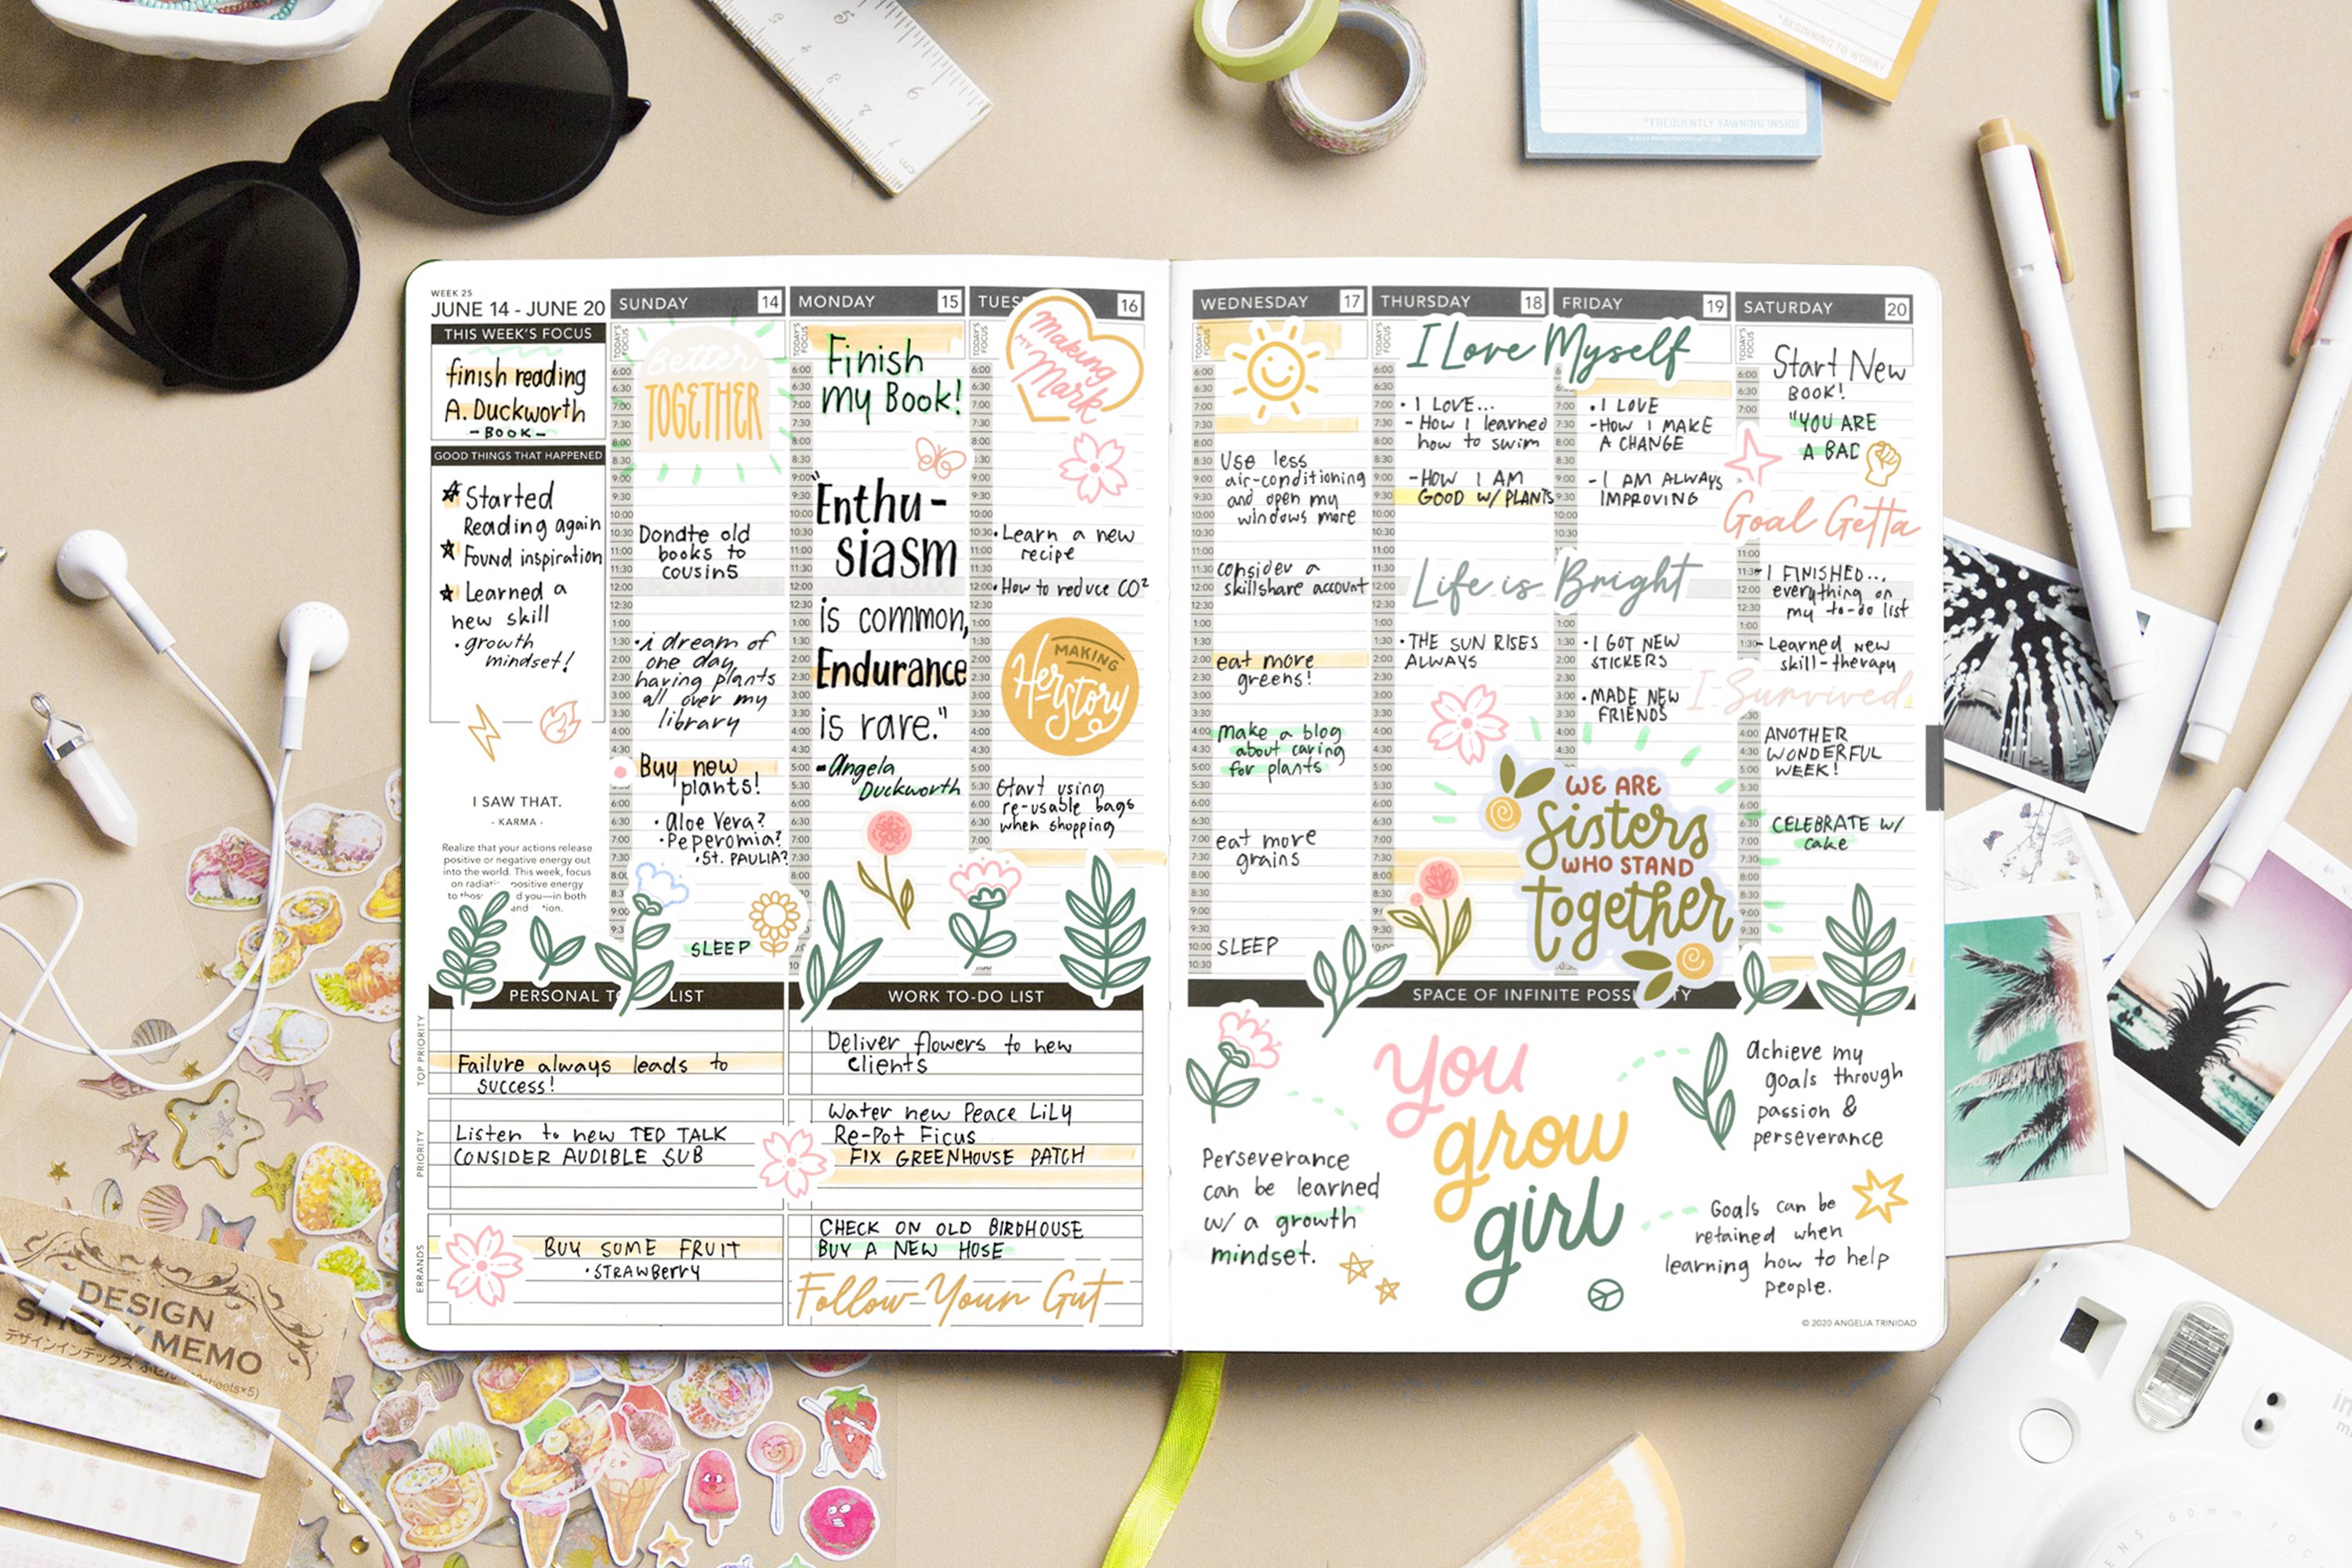 *BEGINNING TO WORRY
*FREQUENTLY YAWNING INSIDE
WEEK 25
JUNE 14 - JUNE 20
THIS WEEK'S FOCUS
finish reading
A. Duckworth
- BOOK -
GOOD THINGS THAT HAPPENED
Started
Reading again
Found inspiration
Learned a
new skill
• growth
mindset!
I SAW THAT.
- KARMA -
Realize that your actions release
positive or negative energy out
into the world. This week, focus
on positive energy
to d you—in both
and
SUNDAY 14
TODAY'S FOCUS
Better
TOGETHER
Donate old
books to
cousins
• i dream of
one day
having plants
all over my
library
Buy new
plants!
• Aloe Vera?
• Peperomia?
• St. PAULIA?
SLEEP
MONDAY 15
TODAY'S FOCUS
Finish
my Book!
"Enthu-
siasm
is common,
Endurance
is rare."
- Angela
Duckworth
TUES 16
TODAY'S FOCUS
Making
MY
Mark
• Learn a new
recipe
• How to reduce CO²
MAKING
Herstory
Start using
re-usable bags
when shopping
WEDNESDAY 17
TODAY'S FOCUS
Use less
air-conditioning
and open my
windows more
consider a
skillshare account
eat more
greens!
Make a blog
about caring
for plants
eat more
grains
SLEEP
THURSDAY 18
FRIDAY 19
TODAY'S FOCUS
I Love Myself
• I LOVE...
- How I learned
how to swim
- HOW I AM
GOOD W/ PLANTS
• I LOVE
- HOW I MAKE
A CHANGE
- I AM ALWAYS
IMPROVING
Life is Bright
• THE SUN RISES
ALWAYS
• I GOT NEW
STICKERS
• MADE NEW
FRIENDS
WE ARE
Sisters
WHO STAND
together
SATURDAY 20
TODAY'S FOCUS
Start New
BOOK!
"YOU ARE
A BAD
Goal Getta
• I FINISHED...
everything on
my to-do list
- Learned new
skill-therapy
I Survived
ANOTHER
WONDERFUL
WEEK!
CELEBRATE W/
cake
PERSONAL T LIST
TOP PRIORITY
Failure always leads to
success!
PRIORITY
Listen to new TED TALK
CONSIDER AUDIBLE SUB
ERRANDS
BUY SOME FRUIT
• STRAWBERRY
WORK TO-DO LIST
Deliver flowers to new
clients
Water new Peace LiLy
Re-Pot Ficus
FIX GREENHOUSE PATCH
CHECK ON OLD BIRDHOUSE
BUY A NEW HOSE
Follow Your Gut
SPACE OF INFINITE POSSI TY
you
grow
girl
Perseverance
can be learned
w/ a growth
mindset.
achieve my
goals through
passion &
perseverance
Goals can be
retained when
learning how to help
people.
© 2020 ANGELIA TRINIDAD
DESIGN
STICKY MEMO